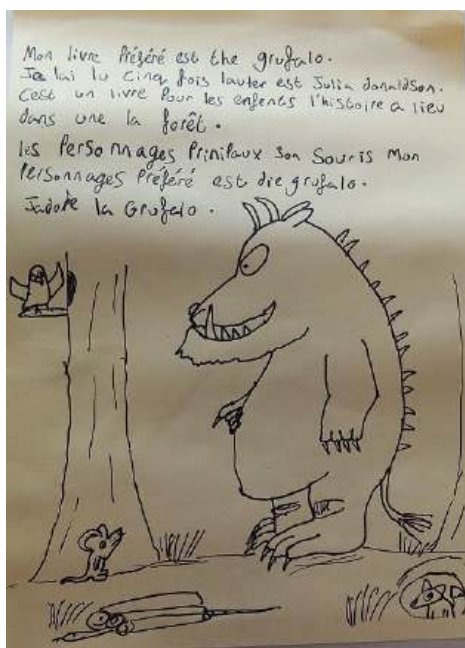 Mon livre Préféré est the grufalo.
Je lai lu cinq fois lauter est Julia donaldson.
C'est un livre Pour les enfents l'histoire a lieu
dans une la forêt.
les Personnages Prinipaux son Souris Mon
Personnages Préféré est die grufalo.
Jadore la Grufalo.